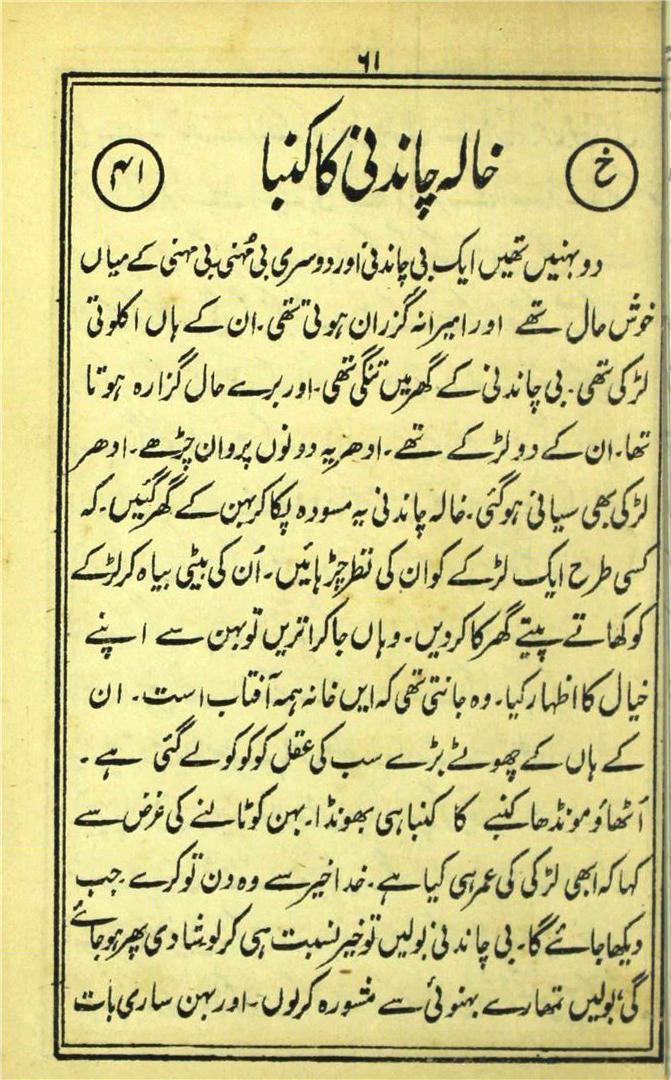 ۶۱
خ
خالہ چاندنی کا کنبا
۴۱
دو بہنیں تھیں ایک بی چاندنی اور دوسری بی مُہنی۔ بی مہنی کے میاں
خوش حال تھے اور امیرانہ گزران ہوتی تھی۔ ان کے ہاں اکلوتی
لڑکی تھی۔ بی چاندنی کے گھر میں تنگی تھی۔ اور برے حال گزارہ ہوتا
تھا۔ ان کے دو لڑکے تھے۔ ادھر یہ دونوں پروان چڑھے۔ ادھر
لڑکی بھی سیانی ہوگئی۔ خالہ چاندنی یہ مسودہ پکا کر بہن کے گھر گئیں۔ کہ
کسی طرح ایک لڑکے کو ان کی نظر چڑہائیں۔ اُن کی بیٹی بیاہ کر لڑکے
کو کھاتے پیتے گھر کا کر دیں۔ وہاں جا کر اتریں تو بہن سے اپنے
خیال کا اظہار کیا۔ وہ جانتی تھی کہ ایں خانہ ہمہ آفتاب است۔ ان
کے ہاں کے چھوٹے بڑے سب کی عقل کو کوکو لے گئی ہے۔
اُٹھاؤ مونڈھا کنبے کا کنبا ہی بھونڈا۔ بہن کو ٹالنے کی غرض سے
کہا کہ ابھی لڑکی کی عمر ہی کیا ہے۔ خدا خیر سے وہ دن تو کرے۔ جب
دیکھا جائے گا۔ بی چاندنی بولیں تو خیر نسبت ہی کر لو شادی پھر ہو جائے
گی، بولیں تمھارے بہنوئی سے مشورہ کر لوں۔ اور بہن ساری بات